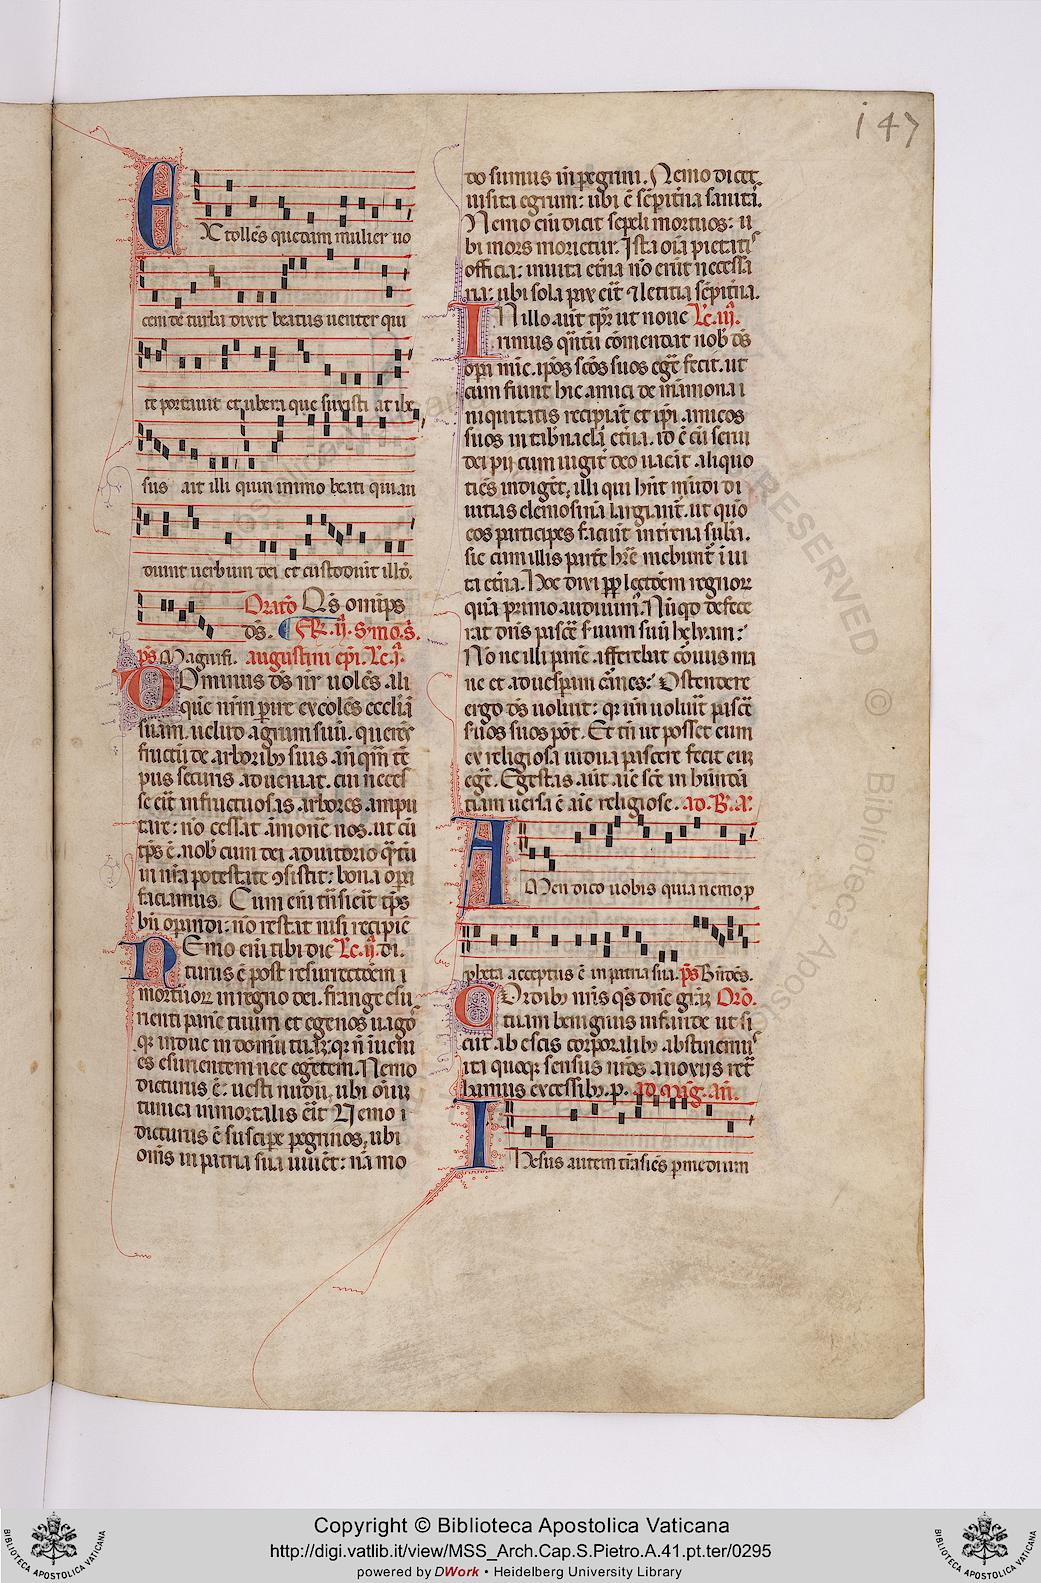 147
Xtollens quedam mulier uo
cem de turba dixit beatus uenter qui
te portauit et ubera que suxisti at ihe
sus ait illi quin immo beati qui au
diunt uerbum dei et custodiunt illd̄.
Oratō Qs̄ omīps
ds̄. Fr̄. ij. Smo. s̄.
ps̄ Magnifi. augustini ep̄i. Lc̄. j.
Ominus ds̄ nr̄ uolēs ali
suam. uelut agrum suū. querēs
fructū de arboribꝰ suis
pus securis adueniat. cui neces
se eīt infructuosas arbores ampu
tare: nō cessat āmonē nos. ut cū
tp̄s ē. nob̄ cum dei adiutorio qͣntū
in nr̄a potestate ꝯsistit: bona oꝑa
faciamus. Cum eni
bn̄ oꝑandi: nō restat nisi recipiē
Emo eni tibi dic Lc̄. ij. di.
turus ē post resurrectōem i
mortuoꝝ in regno dei. frange esu
rienti panē tuum et egenos uagos
es esurientem nec egētem. Nemo
dicturus ē: uesti nudū, ubi oīuꝫ
tunica immortalis eīt Nemo i
dicturus ē suscipe pegrinos, ubi
om̄s in patria sua uiuēt: nā mo
do sumus in pegrini. Nemo dicet.
uisita egrum: ubi ē sēpitna sanitas.
Nemo eni dicat sepeli mortuos: u
bi mors morietur. Ista oīa pietatis
officia: in uita etna nō erūt necessa
ria: ubi sola pax eīt ⁊ letitia sēpitna.
N illo. aut tp̄r ut noue Lc̄. iij.
rimus qͣntū cōmendat nob̄ ds̄
oꝑa mīe. ip̄os scōs suos egē fecit. ut
cum fiunt hic amici de māmona i
niquitatis recipiāt et ip̄i amicos
suos in tabnacla etna. id ē cū serui
dei pij cum iugit deo uacāt aliquo
tiēs indigēt, illi qui hn̄t mūdi di
uitias elemosinā largiant. ut quō
eos participes faciūt
sic cum illis partē
ta etna. Hoc dixi ꝓp lectōem regnoꝝ
que primo audiuim̄. Nūqd defece
rat dn̄s pascē seruum suū helyam:
No ne illi panē afferebat cōuius ma
ne et ad uesꝑam carnes: Ostendere
ergo ds̄ uoluit: qꝛ un uoluīt pascē
suos suos pōt. Et tn̄ ut posset eum
ex religiosa uidua pascere fecit eaꝫ
egē. Egestas aut aīe scē in hūndā
tiam uersa ē aīe religiose. ad. B. a.
Men dico uobis quia nemo ꝓ
pheta acceptus ē in patria sua. ps̄ Bn̄dc̄s.
Ordibꝰ nr̄is qs̄ dn̄e grāꝫ Orō.
tuam benignus infunde ut si
cut ab escis corporalibꝰ abstinemꝰ
ita quoqꝫ sensus nr̄os a noxijs ret̄
hamus excessibꝰ. p. ad mag. an̄.
Hesus autem trāsiēs p medium
Copyright © Biblioteca Apostolica Vaticana
http://digi.vatlib.it/view/MSS_Arch.Cap.S.Pietro.A.41.pt.ter/0295
powered by DWork • Heidelberg University Library